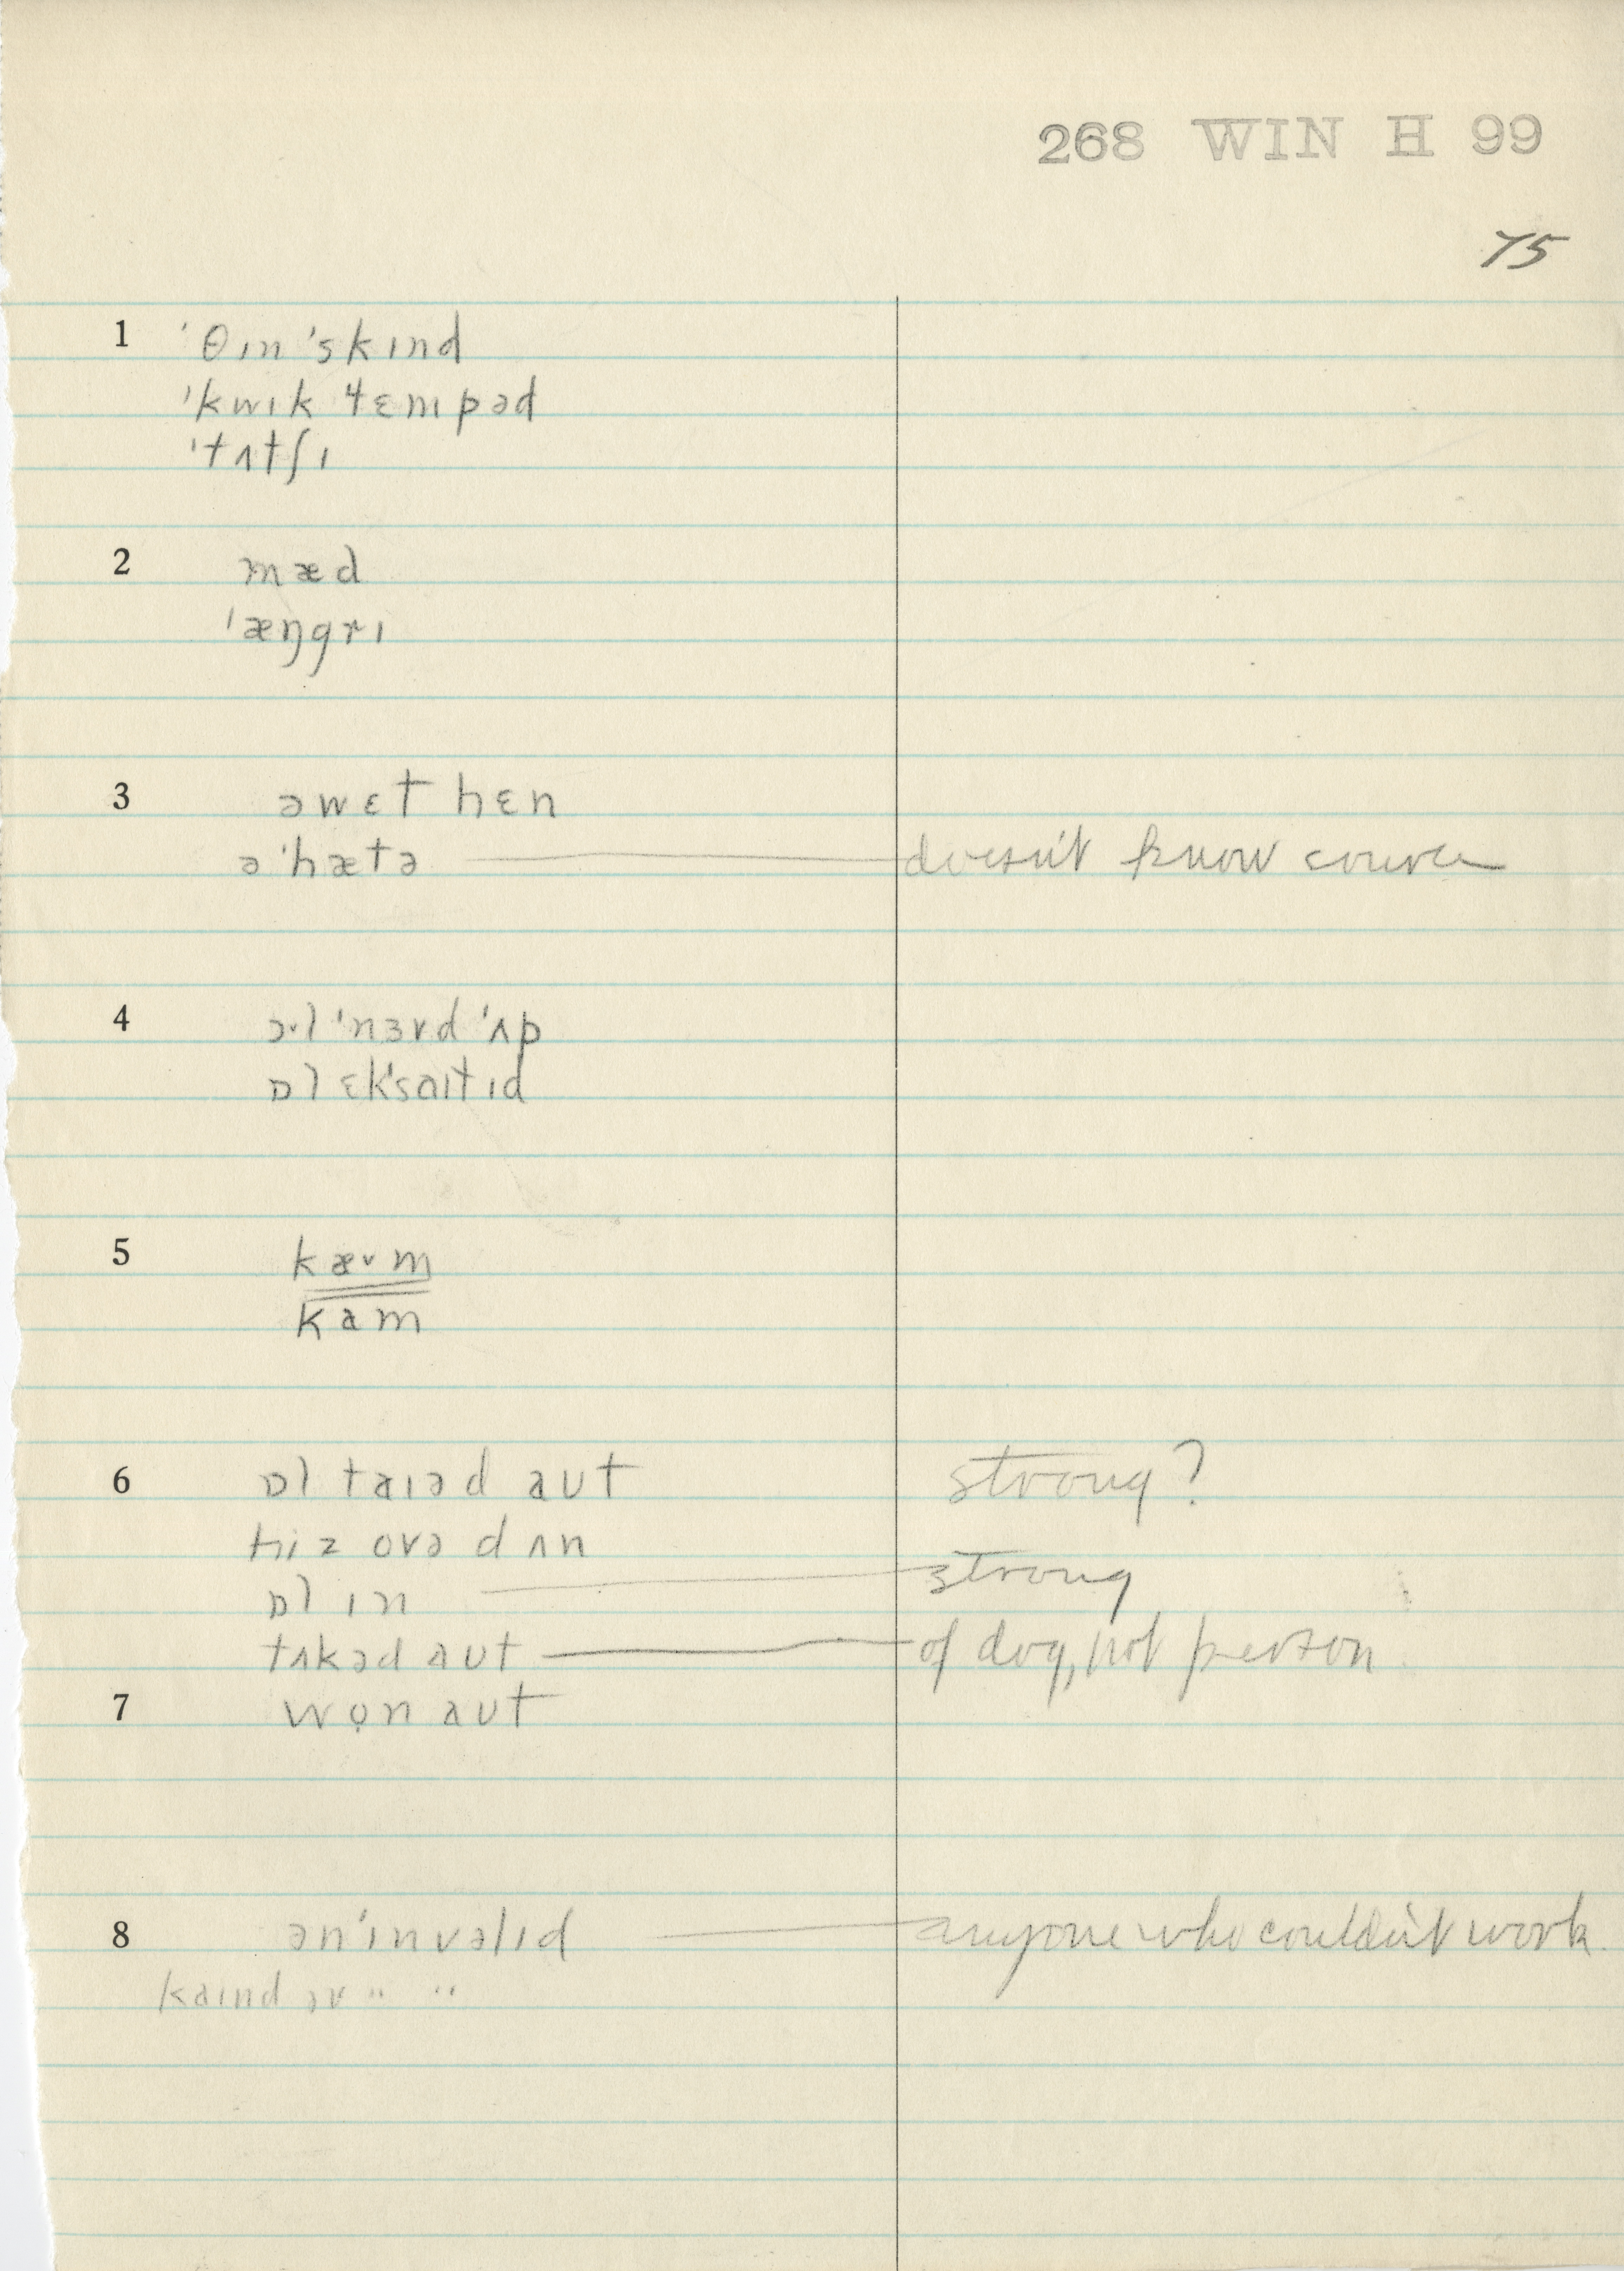 268 WIN H 99
75
1 ˈθɪn ˈskɪnd
ˈkwɪk ˈtɛmpəd
ˈtʌtʃɪ
2 mæd
ˈæŋgrɪ
3 ə wɛt hɛn
ə ˈhætə doesn't know source
4 ɔ˅l ˈnɜvd ˈʌp
ɒl ɛkˈsaɪtɪd
5 kæ˅m
kam
6 ɒl taɪəd aʊt strong?
hiz ovə dʌn
ɒl ɪn strong
tʌkəd aʊt of dog, not person
7 wọn aʊt
8 ən ˈɪnvəlɪd anyone who couldn't work
kaɪnd əv " "